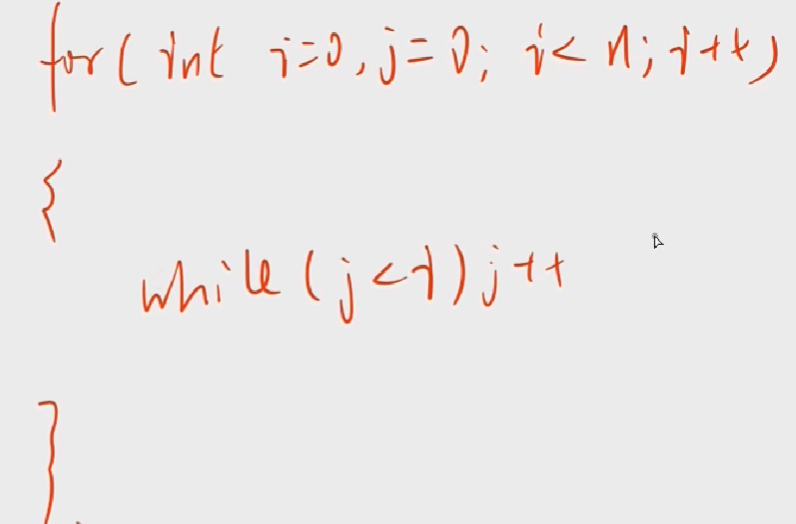 for( int i=0, j=0; i< n; i++)
{
while (j<i) j++
}